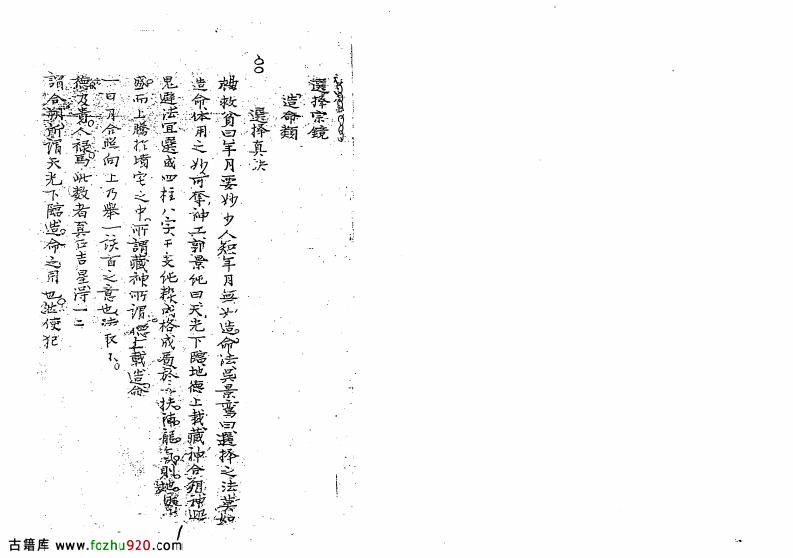 選择宗鏡
造命類
選择真决
楊救貧曰年月要妙少人知年月無如造命法吳景鸞曰選择之法莫如
造命体用之妙可奪神工郭景純曰天光下臨地德上載藏神合朔神迎
鬼避法宜選成四柱八字干支純粹成格成局扶補龍氣則地
盛而上騰於墳宅之中所謂藏神所謂德上載造命
一曰月合照向上乃舉一該百之意也法取
德及貴人禄馬此數者真正吉星得一二
謂合朔所謂天光下臨造命之用也從使犯
1
古籍库 www.fozhu920.com